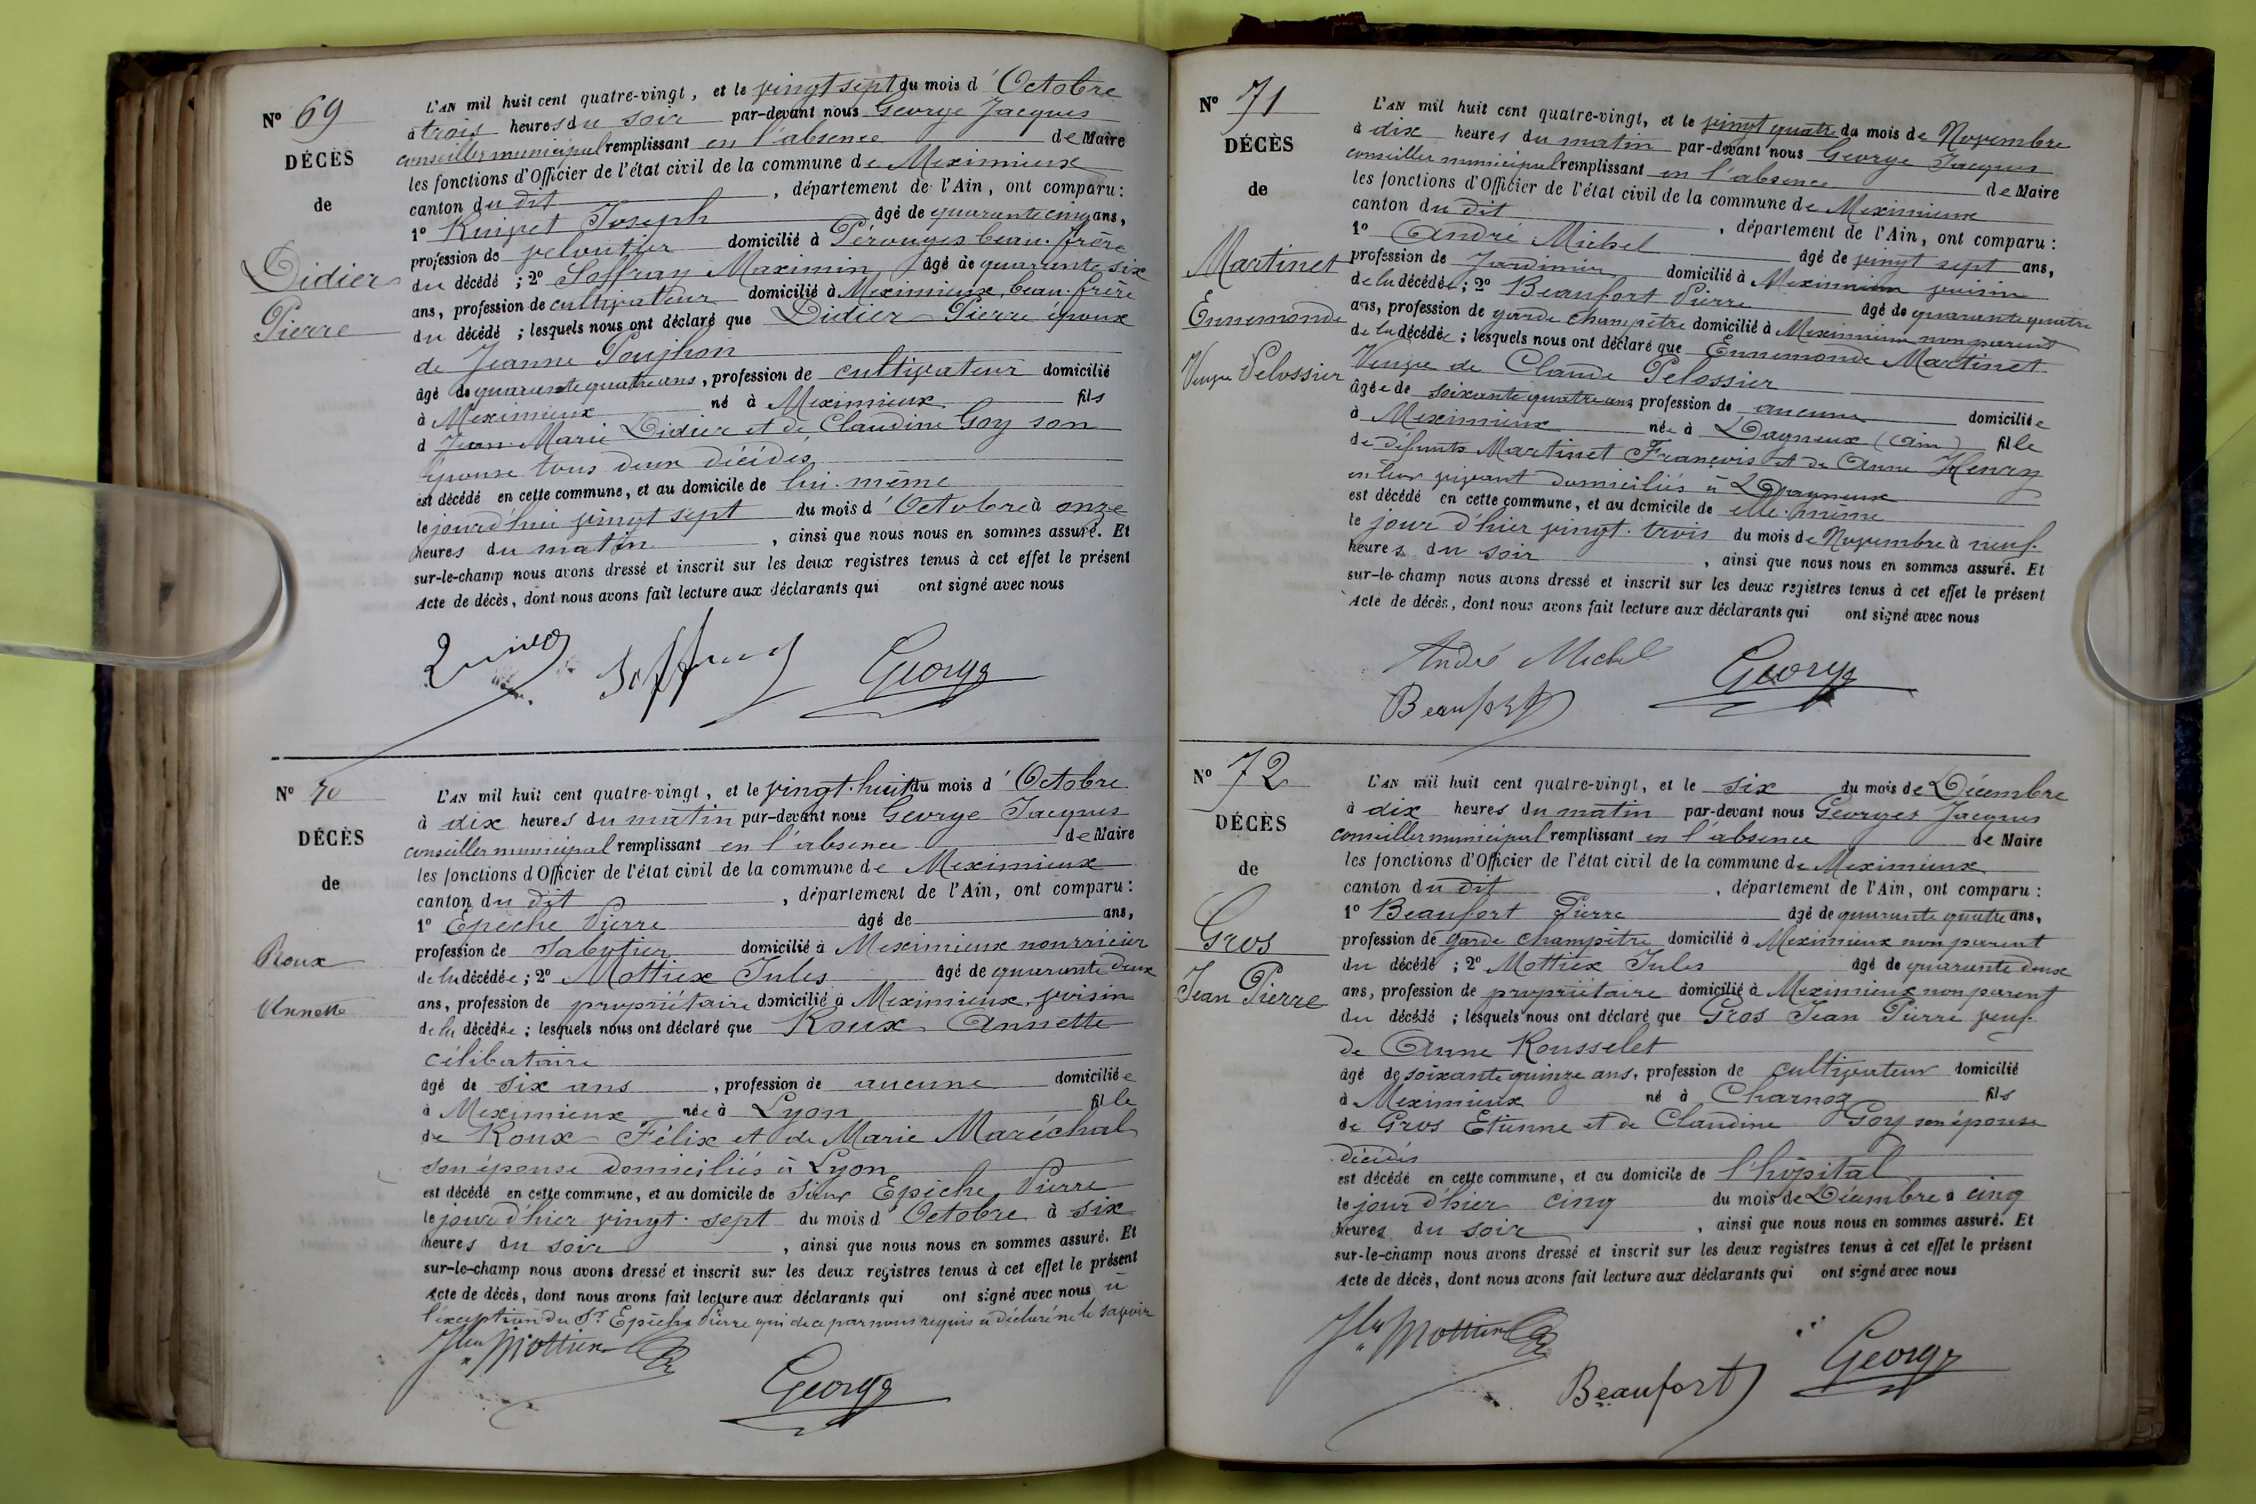 N° 69
DÉCÈS
de
Didier
Pierre
L'AN mil huit cent quatre-vingt, et le vingt sept du mois d'Octobre
à trois heures du soir par-devant nous George Jacques
conseiller municipal remplissant en l'absence de Maire
les fonctions d'Officier de l'état civil de la commune de Meximieux
canton du dit, département de l'Ain, ont comparu :
1° Joseph âgé de quarante cinq ans,
profession de domicilié à Pérouges beau-frère
du décédé ; 2° Soffray Maximin âgé de quarante six
ans, profession de cultivateur domicilié à Meximieux, beau-frère
du décédé ; lesquels nous ont déclaré que Didier Pierre époux
de Jeanne
âgé de quarante quatre ans, profession de cultivateur domicilié
à Meximieux né à Meximieux fils
d Jean-Marie Didier et de Claudine Goy son
épouse tous deux décédés
est décédé en cette commune, et au domicile de lui-même
le jourd'hui vingt sept du mois d'Octobre à onze
heures du matin, ainsi que nous nous en sommes assuré. Et
sur-le-champ nous avons dressé et inscrit sur les deux registres tenus à cet effet le présent
Acte de décès, dont nous avons fait lecture aux déclarants qui ont signé avec nous
Soffray George
N° 70
DÉCÈS
de
Roux
Annette
L'AN mil huit cent quatre-vingt, et le vingt-huit du mois d'Octobre
à dix heures du matin par-devant nous George Jacques
conseiller municipal remplissant en l'absence de Maire
les fonctions d'Officier de l'état civil de la commune de Meximieux
canton du dit, département de l'Ain, ont comparu :
1° Epiche Pierre âgé de ans,
profession de Sabotier domicilié à Meximieux nourricier
de la décédée ; 2° Mottiex Jules âgé de quarante deux
ans, profession de propriétaire domicilié à Meximieux, voisin
de la décédée ; lesquels nous ont déclaré que Roux Annette
célibataire
âgé de six ans, profession de aucune domiciliée
à Meximieux née à Lyon fille
de Roux Félix et de Marie Maréchal
son épouse domiciliés à Lyon
est décédé en cette commune, et au domicile de Sieur Epiche Pierre
le jour d'hier vingt-sept du mois d'Octobre à six
heures du soir, ainsi que nous nous en sommes assuré. Et
sur-le-champ nous avons dressé et inscrit sur les deux registres tenus à cet effet le présent
Acte de décès, dont nous avons fait lecture aux déclarants qui ont signé avec nous à
l'exception du Sr Epiche Pierre qui de ce par nous requis a déclaré ne le savoir
Jles Mottiex
George
N° 71
DÉCÈS
de
Martinet
Ennemonde
Veuve Pelossier
L'AN mil huit cent quatre-vingt, et le vingt quatre du mois de Novembre
à dix heures du matin par-devant nous George Jacques
conseiller municipal remplissant en l'absence de Maire
les fonctions d'Officier de l'état civil de la commune de Meximieux
canton du dit, département de l'Ain, ont comparu :
1° André Michel âgé de vingt sept ans,
profession de Jardinier domicilié à Meximieux voisin
de la décédée ; 2° Beaufort Pierre âgé de quarante quatre
ans, profession de garde champêtre domicilié à Meximieux non parent
de la décédée ; lesquels nous ont déclaré que Ennemonde Martinet
Veuve de Claude Pelossier
âgée de soixante quatre ans profession de aucune domiciliée
à Meximieux née à Dagneux (Ain) fille
de défunts Martinet François et de Anne Henry
en leur vivant domiciliés à Dagneux
est décédé en cette commune, et au domicile de elle-même
le jour d'hier vingt-trois du mois de Novembre à neuf
heures du soir, ainsi que nous nous en sommes assuré. Et
sur-le-champ nous avons dressé et inscrit sur les deux registres tenus à cet effet le présent
Acte de décès, dont nous avons fait lecture aux déclarants qui ont signé avec nous
André Michel George
Beaufort
N° 72
DÉCÈS
de
Gros
Jean Pierre
L'AN mil huit cent quatre-vingt, et le six du mois de Décembre
à dix heures du matin par-devant nous Georges Jacques
conseiller municipal remplissant en l'absence de Maire
les fonctions d'Officier de l'état civil de la commune de Meximieux
canton du dit, département de l'Ain, ont comparu :
1° Beaufort Pierre âgé de quarante quatre ans,
profession de garde champêtre domicilié à Meximieux non parent
du décédé ; 2° Mottiex Jules âgé de quarante deux
ans, profession de propriétaire domicilié à Meximieux non parent
du décédé ; lesquels nous ont déclaré que Gros Jean Pierre veuf
de Anne Rousselet
âgé de soixante quinze ans, profession de cultivateur domicilié
à Meximieux né à Charnoz fils
de Gros Etienne et de Claudine Goy son épouse
décédés
est décédé en cette commune, et au domicile de l'hôpital
le jour d'hier cinq du mois de Décembre à cinq
heures du soir, ainsi que nous nous en sommes assuré. Et
sur-le-champ nous avons dressé et inscrit sur les deux registres tenus à cet effet le présent
Acte de décès, dont nous avons fait lecture aux déclarants qui ont signé avec nous
Jles Mottiex
Beaufort George